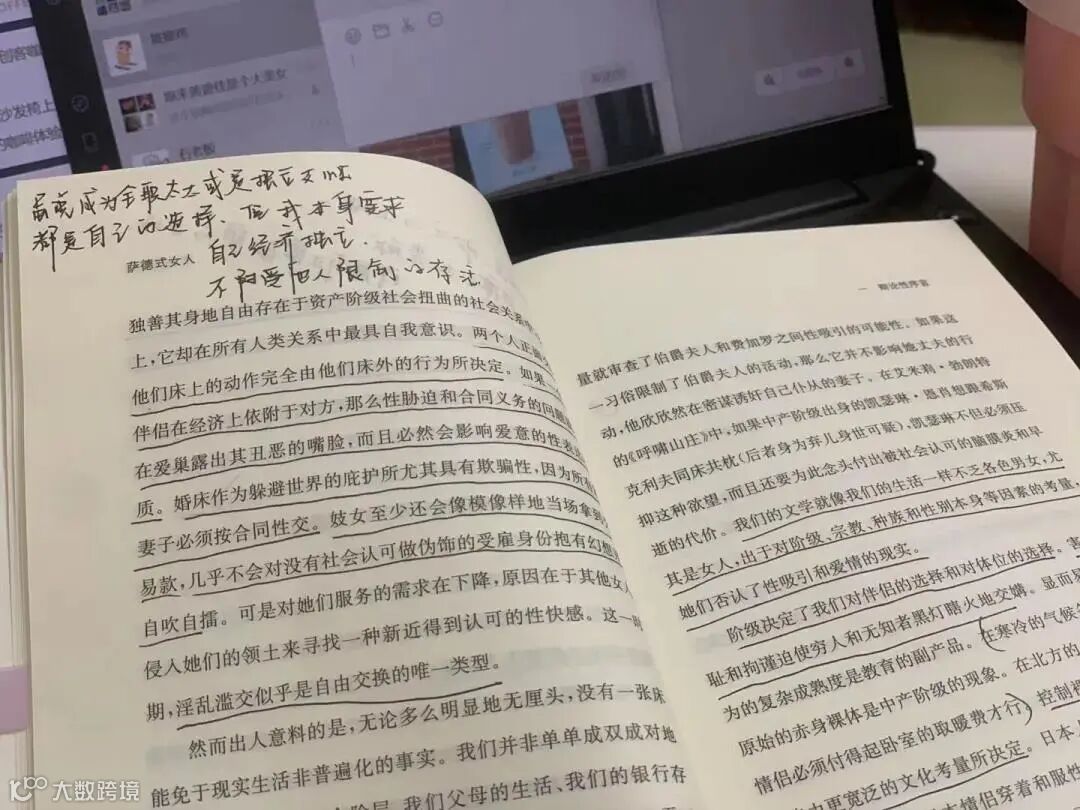 创客咖
沙发椅上
的咖啡体验
原来黄逾佳是个大美女
行老板
最终成为全职太太或是独立女性
都是自己的选择,但我本身要求
自己经济独立.
不附受他人限制的存在
萨德式女人
独善其身地自由存在于资产阶级社会扭曲的社会关系
上,它却在所有人类关系中最具自我意识。两个人正
他们床上的动作完全由他们床外的行为所决定。如果
伴侣在经济上依附于对方,那么性胁迫和合同义务的问题
在爱巢露出其丑恶的嘴脸,而且必然会影响爱意的性表
质。婚床作为躲避世界的庇护所尤其具有欺骗性,因为所有
妻子必须按合同性交。妓女至少还会像模像样地当场拿到
易款,几乎不会对没有社会认可做伪饰的受雇身份抱有幻想
自吹自擂。可是对她们服务的需求在下降,原因在于其他女
侵入她们的领土来寻找一种新近得到认可的性快感。这一时
期,淫乱滥交似乎是自由交换的唯一类型。
然而出人意料的是,无论多么明显地无厘头,没有一张床
能免于现实生活非普遍化的事实。我们并非单单成双成对地
阶层、我们父母的生活、我们的银行存
一 辩论性序言
量就审查了伯爵夫人和费加罗之间性吸引的可能性。如果这
一习俗限制了伯爵夫人的活动,那么它并不影响她丈夫的行
动,他欣欣然在密谋诱奸自己仆从的妻子。在艾米莉·勃朗特
的《呼啸山庄》中,如果中产阶级出身的凯瑟琳·恩肖想跟希斯
克利夫同床共枕(后者身为弃儿身世可疑),凯瑟琳不但必须压
抑这种欲望,而且还要为此念头付出被社会认可的脑膜炎和早
逝的代价。我们的文学就像我们的生活一样不乏各色男女,尤
其是女人,出于对阶级、宗教、种族和性别本身等因素的考量,
她们否认了性吸引和爱情的现实。
阶级决定了我们对伴侣的选择和对体位的选择。害
耻和拘谨迫使穷人和无知者黑灯瞎火地交媾。显而易
为的复杂成熟度是教育的副产品。(在寒冷的气候
原始的赤身裸体是中产阶级的现象。在北方的
情侣必须付得起卧室的取暖费才行)控制
更宽泛的文化考量所决定。日本
情侣穿着和服性
大数跨境